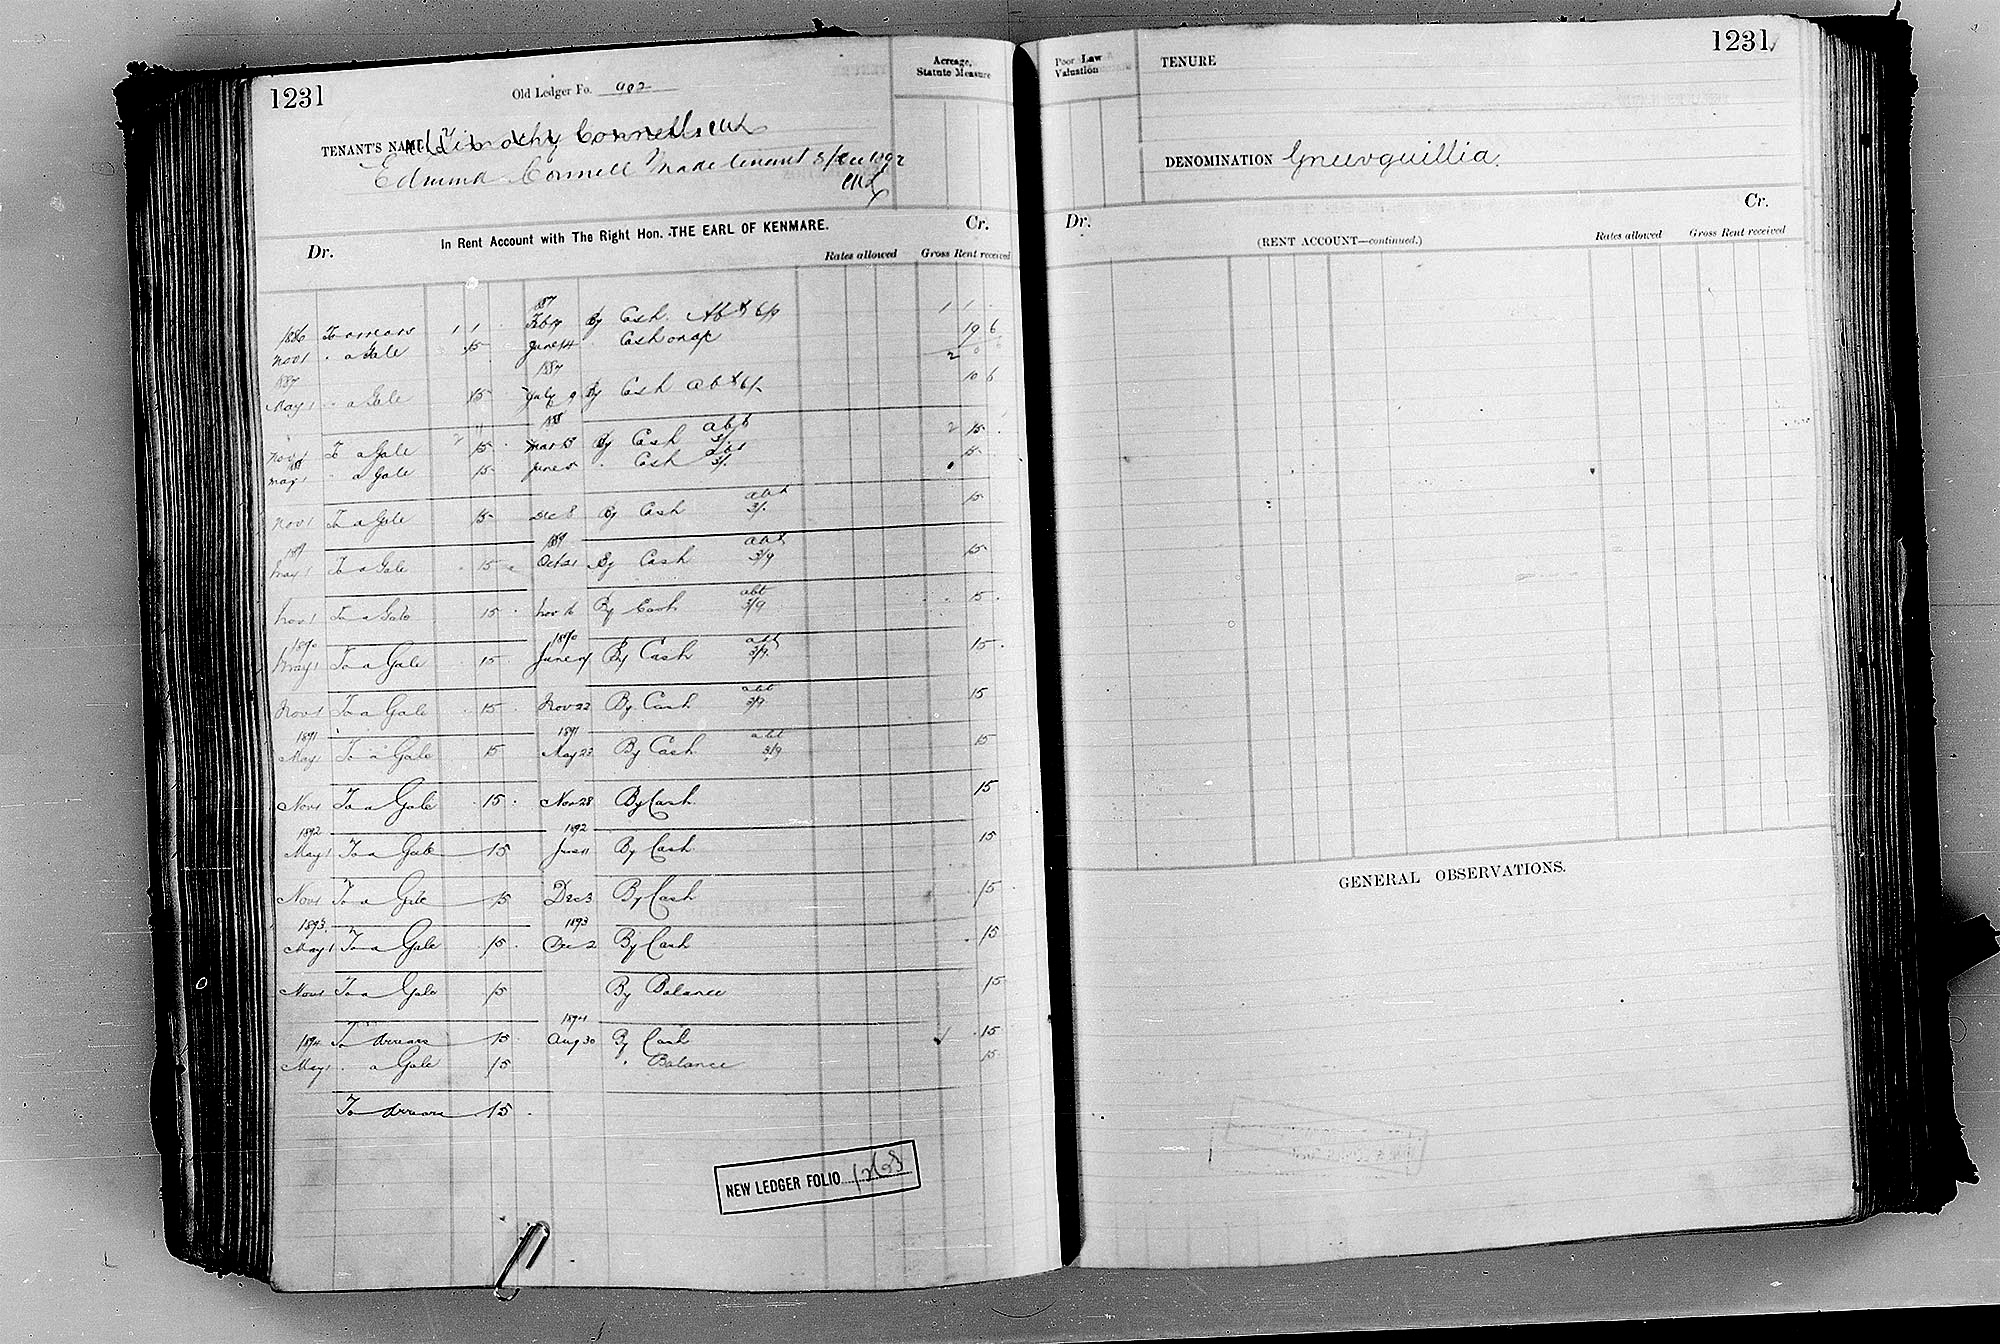 1231
Old Ledger Fo. 902
Acreage,
Statute Measure
TENANT'S NAME Timothy Connell
Edmund Connell made tenant 3/Dec 1892
In Rent Account with The Right Hon. THE EARL OF KENMARE.
Dr. Cr.
Rates allowed Gross Rent received
1887
1886 To arrears 1 1 Feb By Cash Abt 6/9 1 1
Nov 1 " a Gale 15 June 14 " Cash on a/c 19 6
1887 1887 2 0 6
May 1 " a Gale 15 July 9 By Cash abt 6/ 10 6
2 11 1888 2 11
Nov 1 To a Gale 15 Mar 13 By Cash abt 3/. 15
88 May 1 " a Gale 15 June " Cash abt 3/. 15
Nov 1 To a Gale 15 Dec 8 By Cash abt 3/. 15
1889 1889
May 1 To a Gale 15 Oct 21 By Cash abt 3/9 15
Nov 1 To a Gale 15 Nov 16 By Cash abt 3/9 15
1890 1890
May 1 To a Gale 15 June By Cash abt 3/9 15
Nov 1 To a Gale 15 Nov 22 By Cash abt 3/9 15
1891 1891
May 1 To a Gale 15 May 23 By Cash abt 3/9 15
Nov 1 To a Gale 15 Nov 28 By Cash 15
1892 1892
May 1 To a Gale 15 June 11 By Cash 15
Nov 1 To a Gale 15 Dec 3 By Cash 15
1893 1893
May 1 To a Gale 15 Dec 2 By Cash 15
Nov 1 To a Gale 15 By Balance 15
1894
1894 To Arrears 15 Aug 30 By Cash 15
May 1 " a Gale 15 " Balance 15
To Arrears 15
NEW LEDGER FOLIO 1268
1231
Poor Law
Valuation
TENURE
DENOMINATION Gneevguillia
Dr. Cr.
(RENT ACCOUNT—continued.)
Rates allowed Gross Rent received
GENERAL OBSERVATIONS.